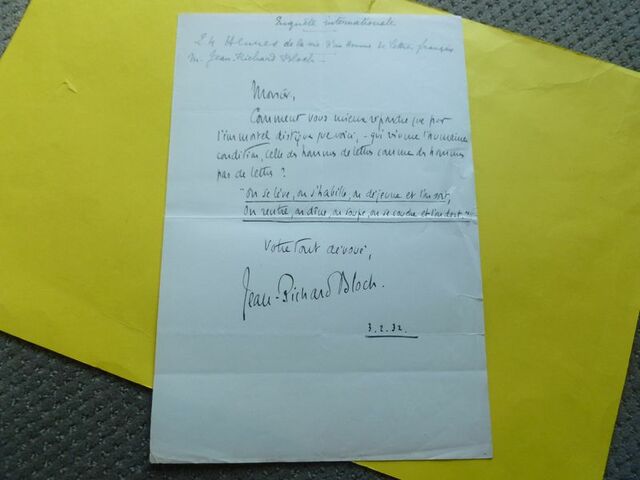 Enquête internationale
24 Heures de la vie d'un homme de lettres français
M. Jean-Richard Bloch
Monsieur,
Comment vous mieux répondre que par
l'immortel distique que voici, - qui résume l'humaine
condition, celle des hommes de lettres comme des hommes
pas de lettres ?
"On se lève, on s'habille, on déjeune et l'on sort,
On rentre, on dîne, on soupe, on se couche et l'on dort."
Votre tout dévoué,
Jean-Richard Bloch.
3.2.32.